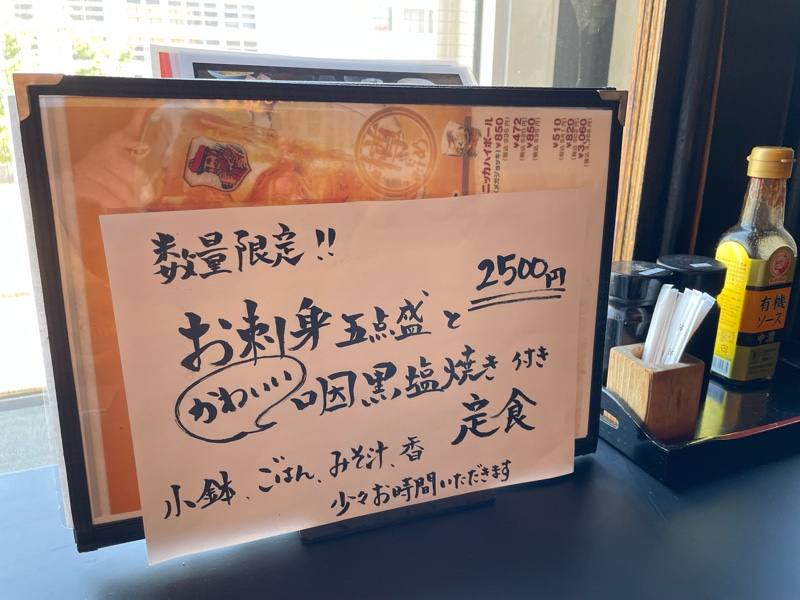 数量限定!!
2500円
お刺身五点盛と
かわいい
咽黒塩焼き付き
定食
小鉢、ごはん、みそ汁、香
少々お時間いただきます
ニッカハイボール
¥850
¥472
¥850
¥510
¥820
¥3,060
有機
ソース